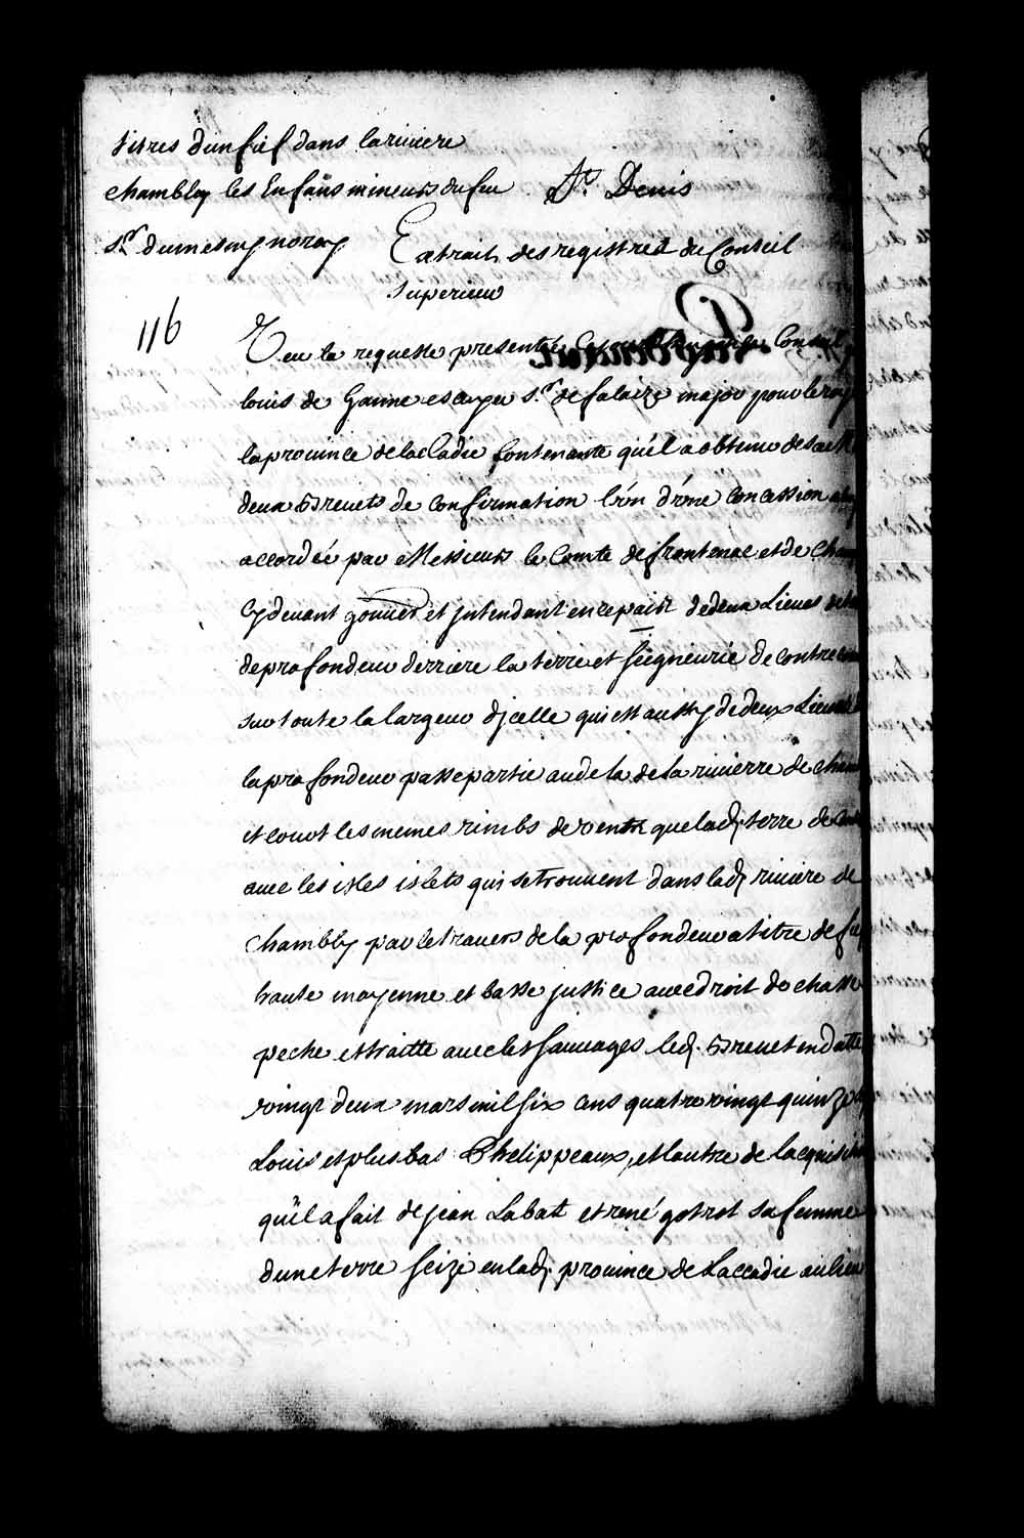 titres d'un fief dans la riviere
chambly les Enfans mineurs du feu
Sr. dumesny noray
St. Denis
Extrait des registres du Conseil
superieur
116
Veu la requeste presentée Conseil
louis de Ganne escuyer Sr. de falaize major pour le roy
la province de laccadie contenante qu'il a obtenu de sa
deux Brevets de confirmation l'un d'une concession
accordée par Messieurs le Comte de frontenac et de
Cy devant gouver et jntendant en repaist de deux Lieues de
de profondeur derriere la terre et seigneurie de contre
sur toute la largeur d'jcelle qui est aussy de deux Lieues
la profondeur passe partie au dela de la rivierre de
et court les memes rimbs de vents que lad. terre de
avec les isles islets qui se trouvent dans lad. riviere de
Chambly par le travers de la profondeur a titre de
haute moyenne et basse justice avec droit de chasse
peche et traitte avec les sauvages led. Brevet en datte
vingt deux mars mil six cens quatre vingt quinze
Louis et plus bas Phelippeaux, et l'autre de lacquisi
qu'il a fait de jean Labatt et rené gotrot sa femme
d'une terre seize en lad. province de Laccadie au lieu